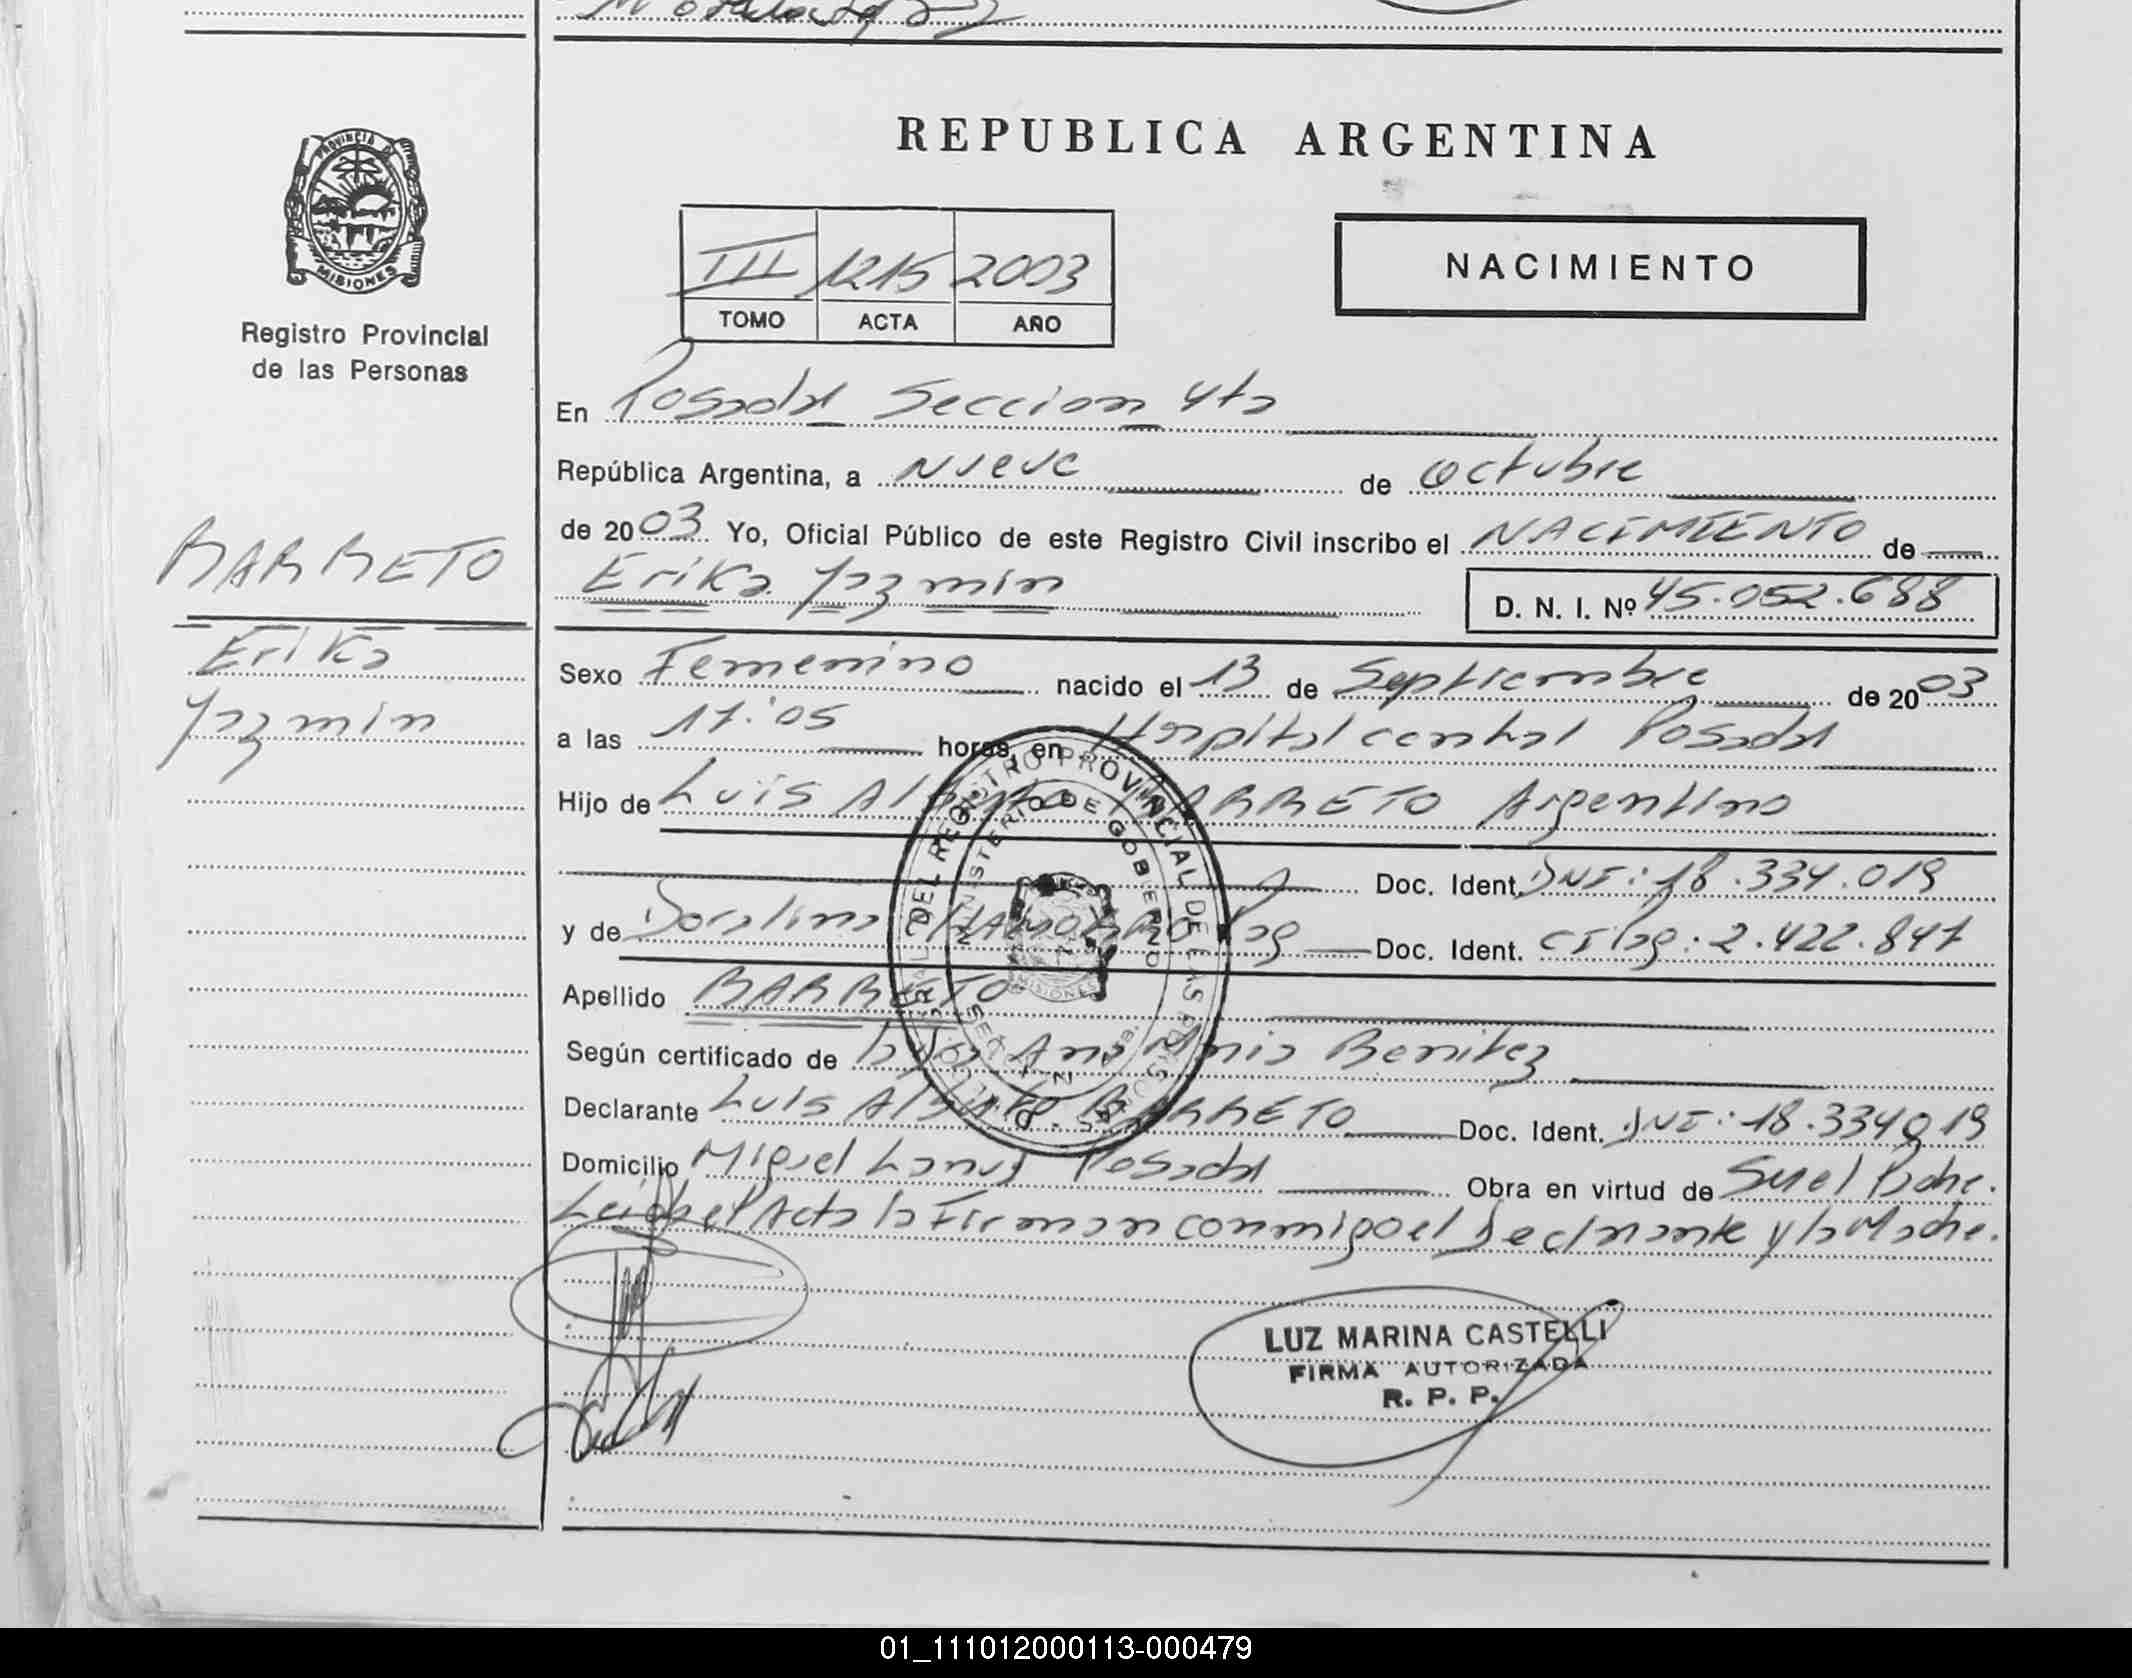 REPUBLICA ARGENTINA
PROVINCIA DE
MISIONES
Registro Provincial
de las Personas
NACIMIENTO
III 1215 2003
TOMO ACTA AÑO
En Posadas Seccion 4ta
República Argentina, a nueve de Octubre
de 2003 Yo, Oficial Público de este Registro Civil inscribo el NACIMIENTO de
Erika Yazmin D. N. I. Nº 45.052.688
BARRETO
Erika
Yazmin
Sexo Femenino nacido el 13 de Septiembre de 2003
a las 17:05 horas, en Hospital central Posadas
Hijo de Luis Alberto BARRETO Argentino
Doc. Ident. DNI: 18.334.019
y de Doralina Doc. Ident. CI 2.422.847
Apellido BARRETO
Según certificado de Ana Maria Benitez
Declarante Luis Alberto BARRETO Doc. Ident. DNI: 18.334.019
Domicilio Miguel Lanus Posadas Obra en virtud de Ser el Padre.
Leida el Acta la Firman conmigo el Declarante y la Madre.
DEL REGISTRO PROVINCIAL DE LAS PERSONAS
MINISTERIO DE GOBIERNO
MISIONES
LUZ MARINA CASTELLI
FIRMA AUTORIZADA
R. P. P.
01_111012000113-000479